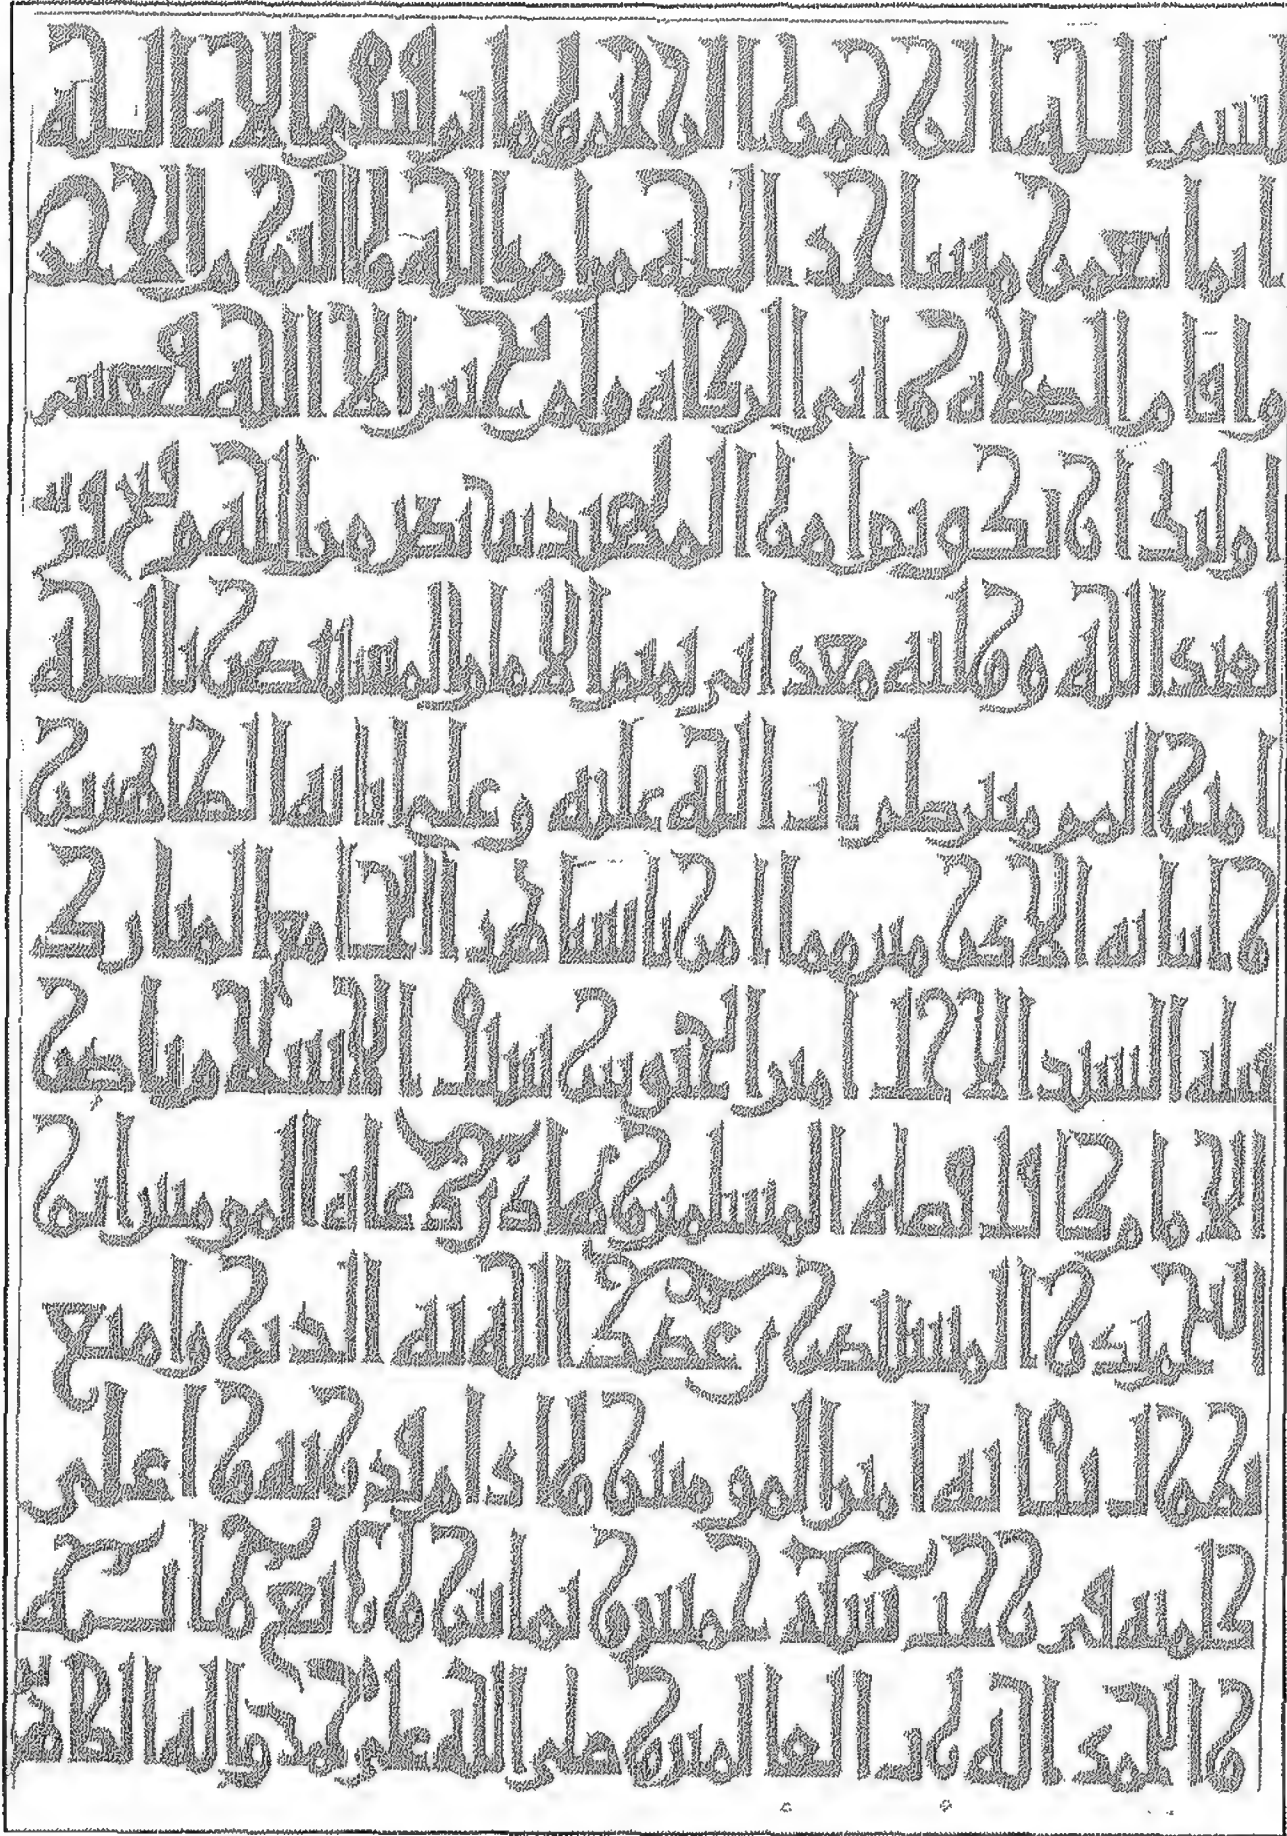 بسم الله الرحمن الرحيم وما توفيقي الا بالله
انما يعمر مساجد الله من امن بالله واليوم الاخر
واقام الصلاة واتى الزكاة ولم يخش الا الله فعسى
اولئك ان يكونوا من المهتدين نصر من الله وفتح قريب
لعبد الله ووليه معد ابي تميم الامام المستنصر بالله
امير المومنين صلوات الله عليه وعلى ابائه الطاهرين
وابنائه الاكرمين مما امر بانشائه هذا الجامع المبارك
السيد الاجل امير الجيوش سيف الاسلام ناصر
الامام كافل قضاة المسلمين وهادي دعاة المومنين ابو
النجم بدر المستنصري عضد الله به الدين وامتع
بطول بقائه امير المومنين وادام قدرته واعلى
كلمته في رجب سنة خمس وثمانين واربع مائة
والحمد لله رب العالمين صلى الله على محمد واله الطاهرين